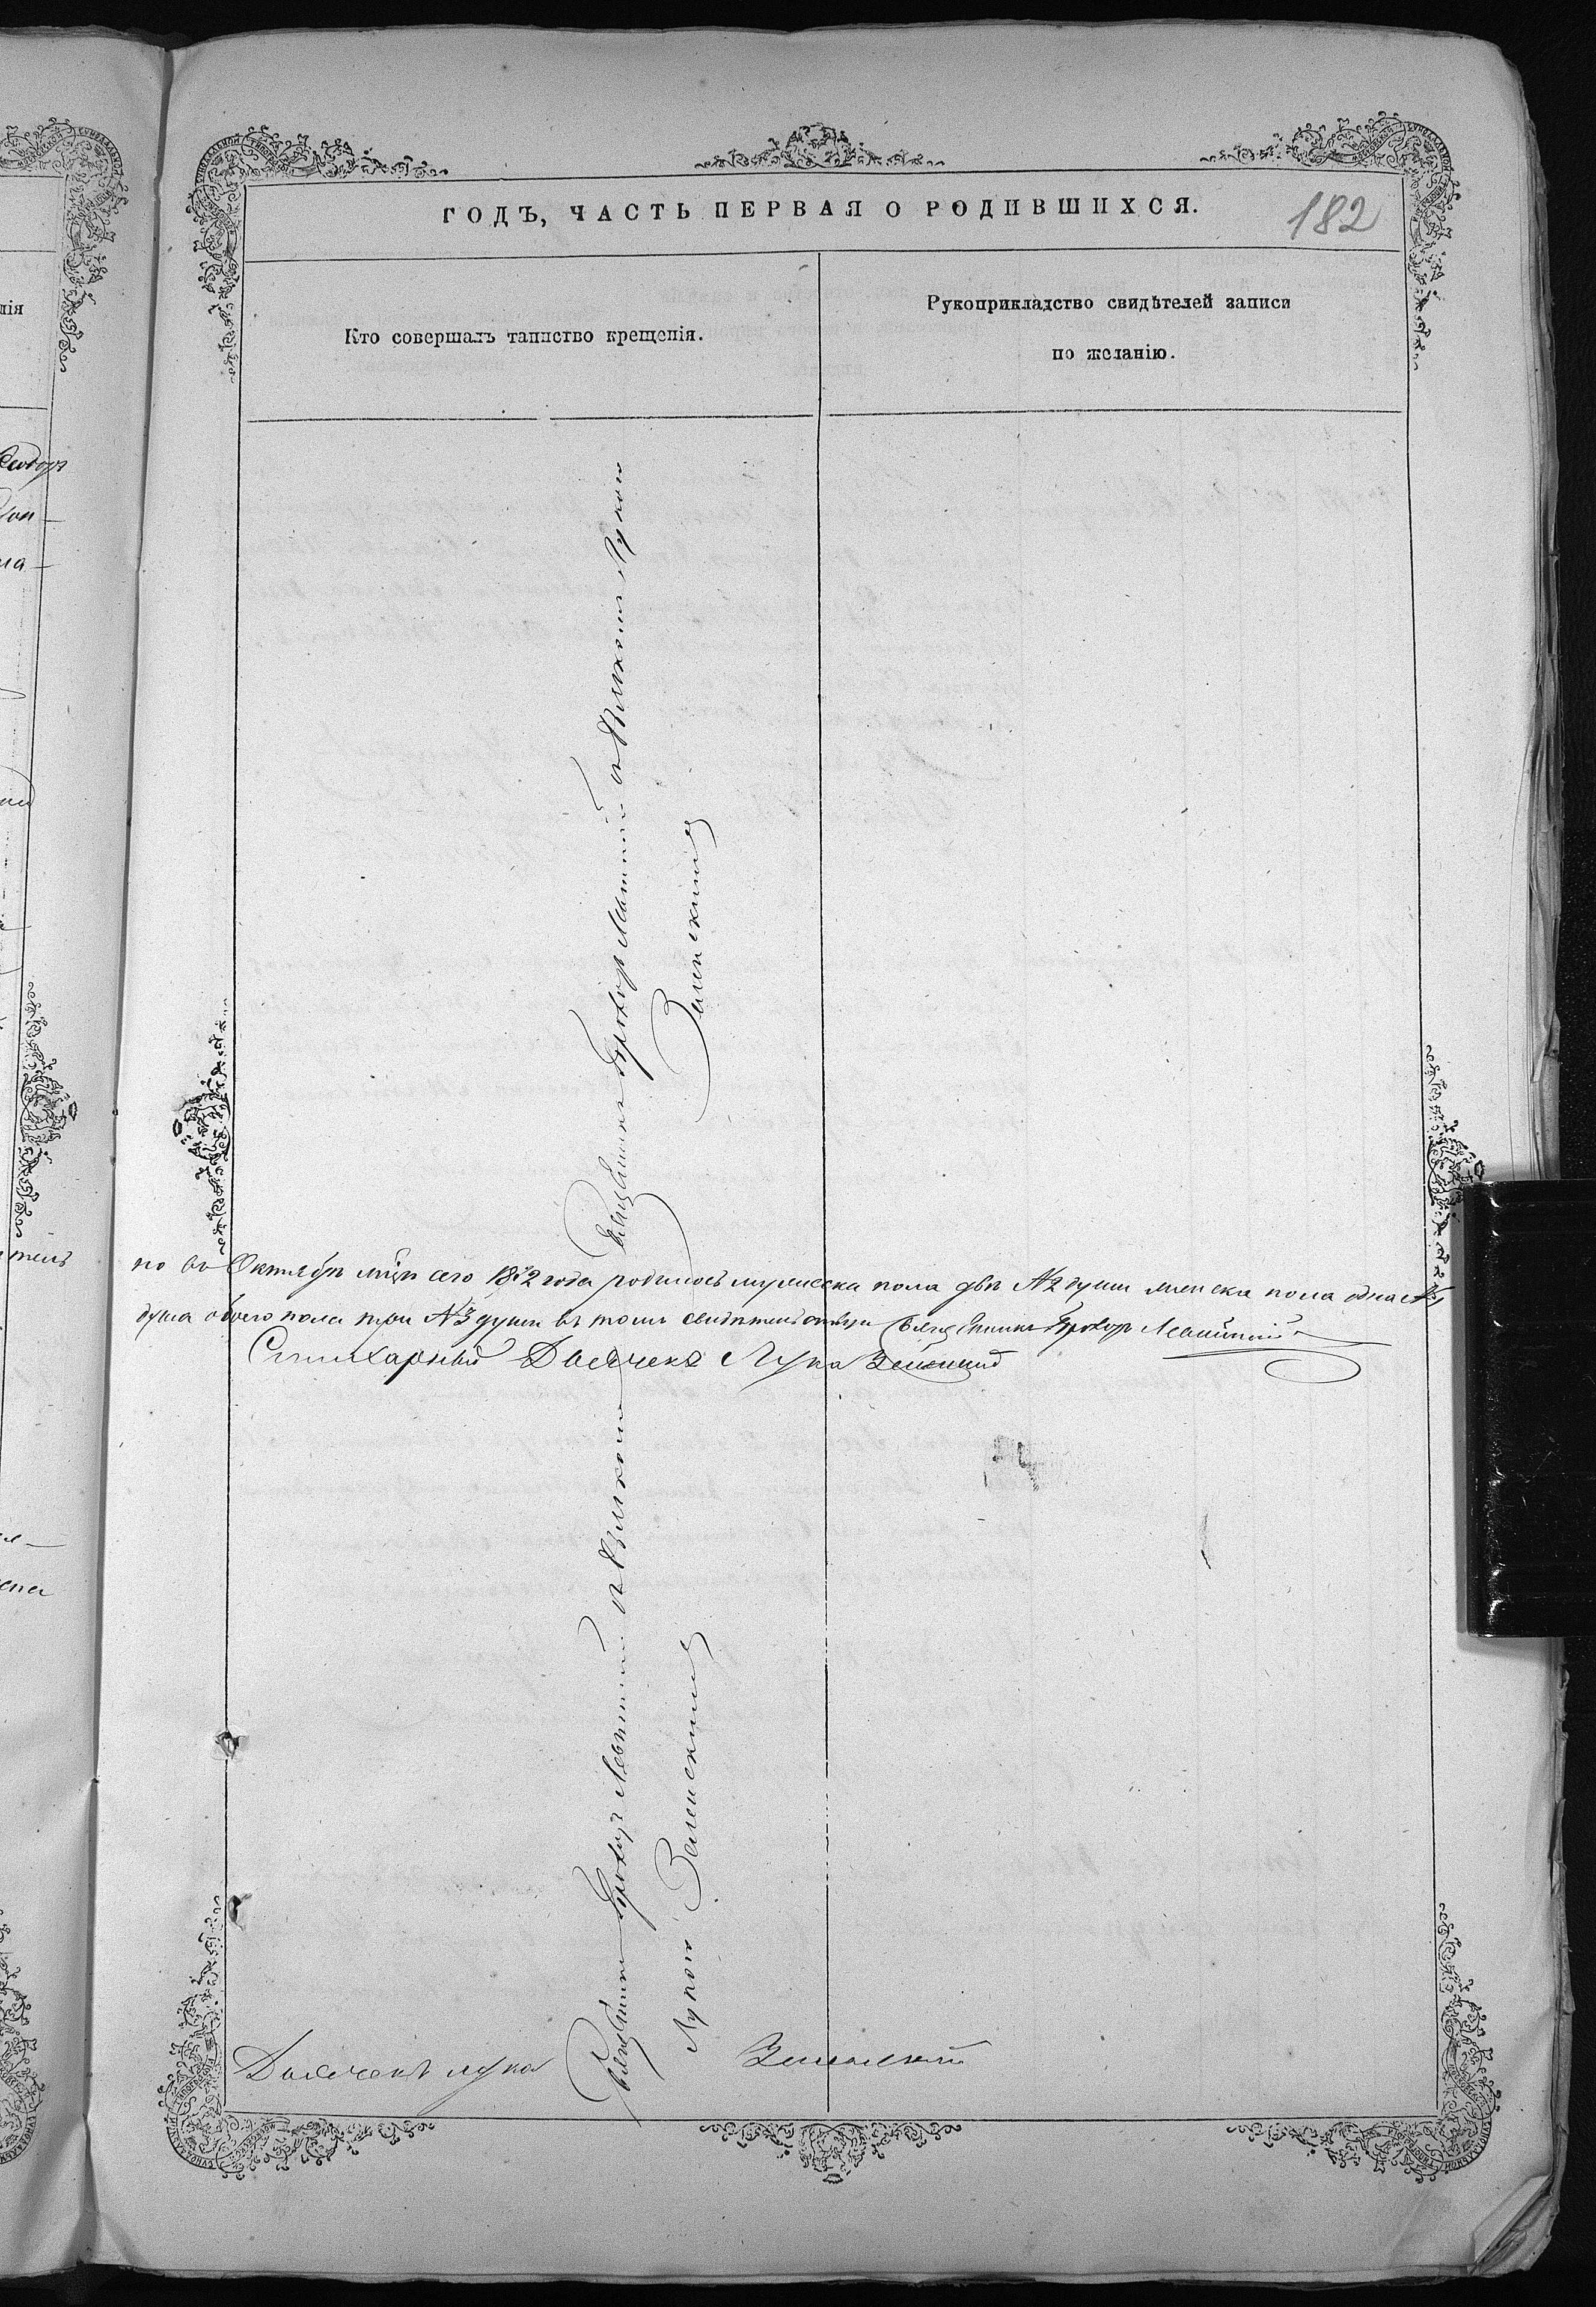 ГОДЪ, ЧАСТЬ ПЕРВАЯ О РОДИВШИХСЯ.
182
Кто совершалъ таинство крещенія.
Рукоприкладство свидѣтелей записи
по желанію.
Священникъ Прохор Левитскій с Дьячкомъ Лукою
Зеленскимъ
но въ Октябрѣ мѣсяцѣ сего года родилось мужеска пола двѣ №2 души женска пола одна №1
душа обоего пола три №3 души въ томъ свидѣтельствуем Священникъ Прохор Левитскій
Стихарный Дьячекъ Лука Зеленский
Священникъ Прохор Левитскій с Дьячкомъ
Лукою Зеленскимъ
Дьячекъ лука Зеленский